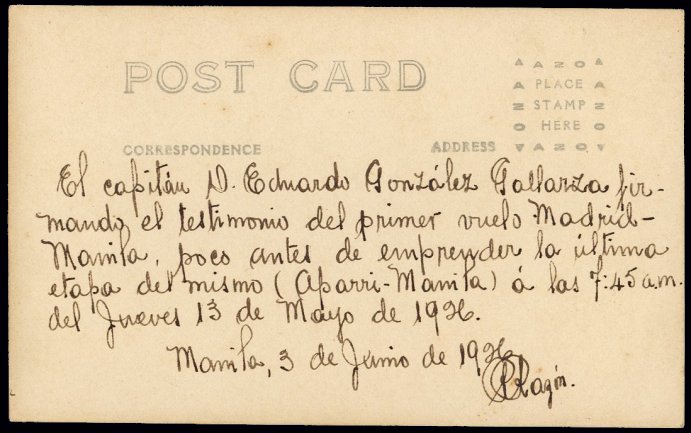 POST CARD
AZO
PLACE
STAMP
HERE
AZO
CORRESPONDENCE
ADDRESS
El capitán D. Eduardo González Gallarza fir-
mando el testimonio del primer vuelo Madrid-
Manila, poco antes de emprender la última
etapa del mismo (Aparri-Manila) á las 7:45 a.m.
del Jueves 13 de Mayo de 1926.
Manila, 3 de Junio de 1926